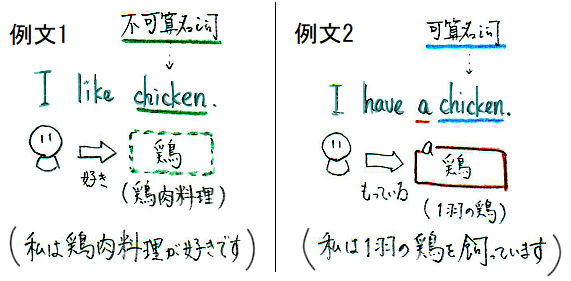 例文1
不可算名詞
I like chicken.
鶏
好き
(鶏肉料理)
(私は鶏肉料理が好きです)
例文2
可算名詞
I have a chicken.
a
鶏
もっている
(1羽の鶏)
(私は1羽の鶏を飼っています)